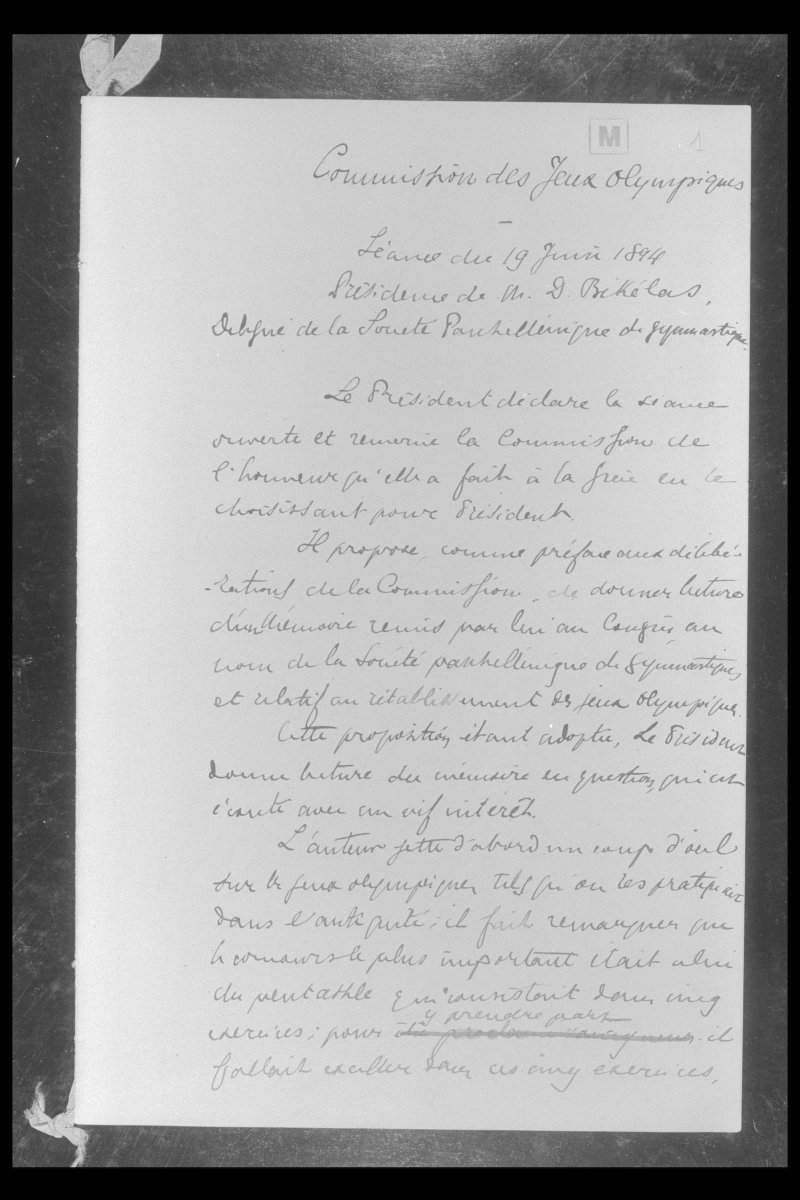 M 1
Commission des Jeux Olympiques
Séance du 19 Juin 1894
Présidence de M. D. Bikélas,
Délégué de la Société Panhellénique de gymnastique.
Le Président déclare la séance
ouverte et remercie la Commission de
l'honneur qu'elle a fait à la Grèce en le
choisissant pour Président.
Il propose, comme préface aux délibé-
-rations de la Commission, de donner lecture
d'un Mémoire remis par lui au Congrès, au
nom de la Société panhellénique de Gymnastique,
et relatif au rétablissement des jeux olympiques.
Cette proposition étant adoptée, Le Président
donne lecture du mémoire en question, qui est
écouté avec un vif intérêt.
L'auteur jette d'abord un coup d'oeil
sur les jeux olympiques tels qu'on les pratiquait
dans l'antiquité; il fait remarquer que
le concours le plus important était celui
du pentathle qui consistait dans cinq
y prendre part
exercices; pour il
fallait exceller dans ces cinq exercices,